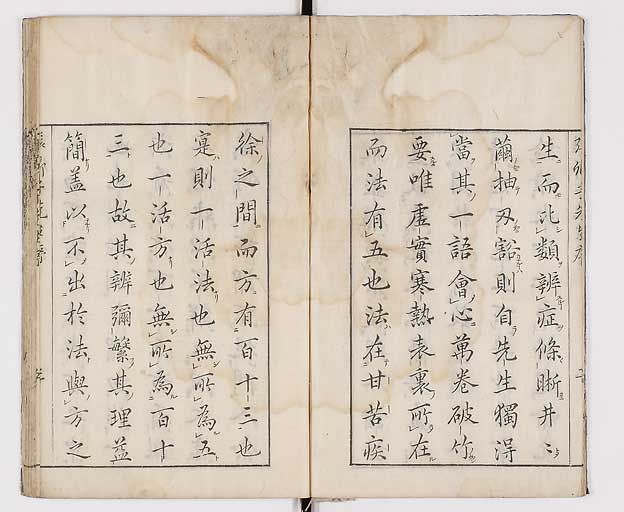 生而比類辨症條晰井〻
繭抽刃豁則自先生獨得
當其一語會心萬卷破竹
要唯虛實寒熱表裏所在
而法有五也法在甘苦疾
徐之間而方有百十三也
寔則一活法也無所為五
也一活方也無所為百十
三也故其辨彌繁其理益
簡蓋以不出於法與方之